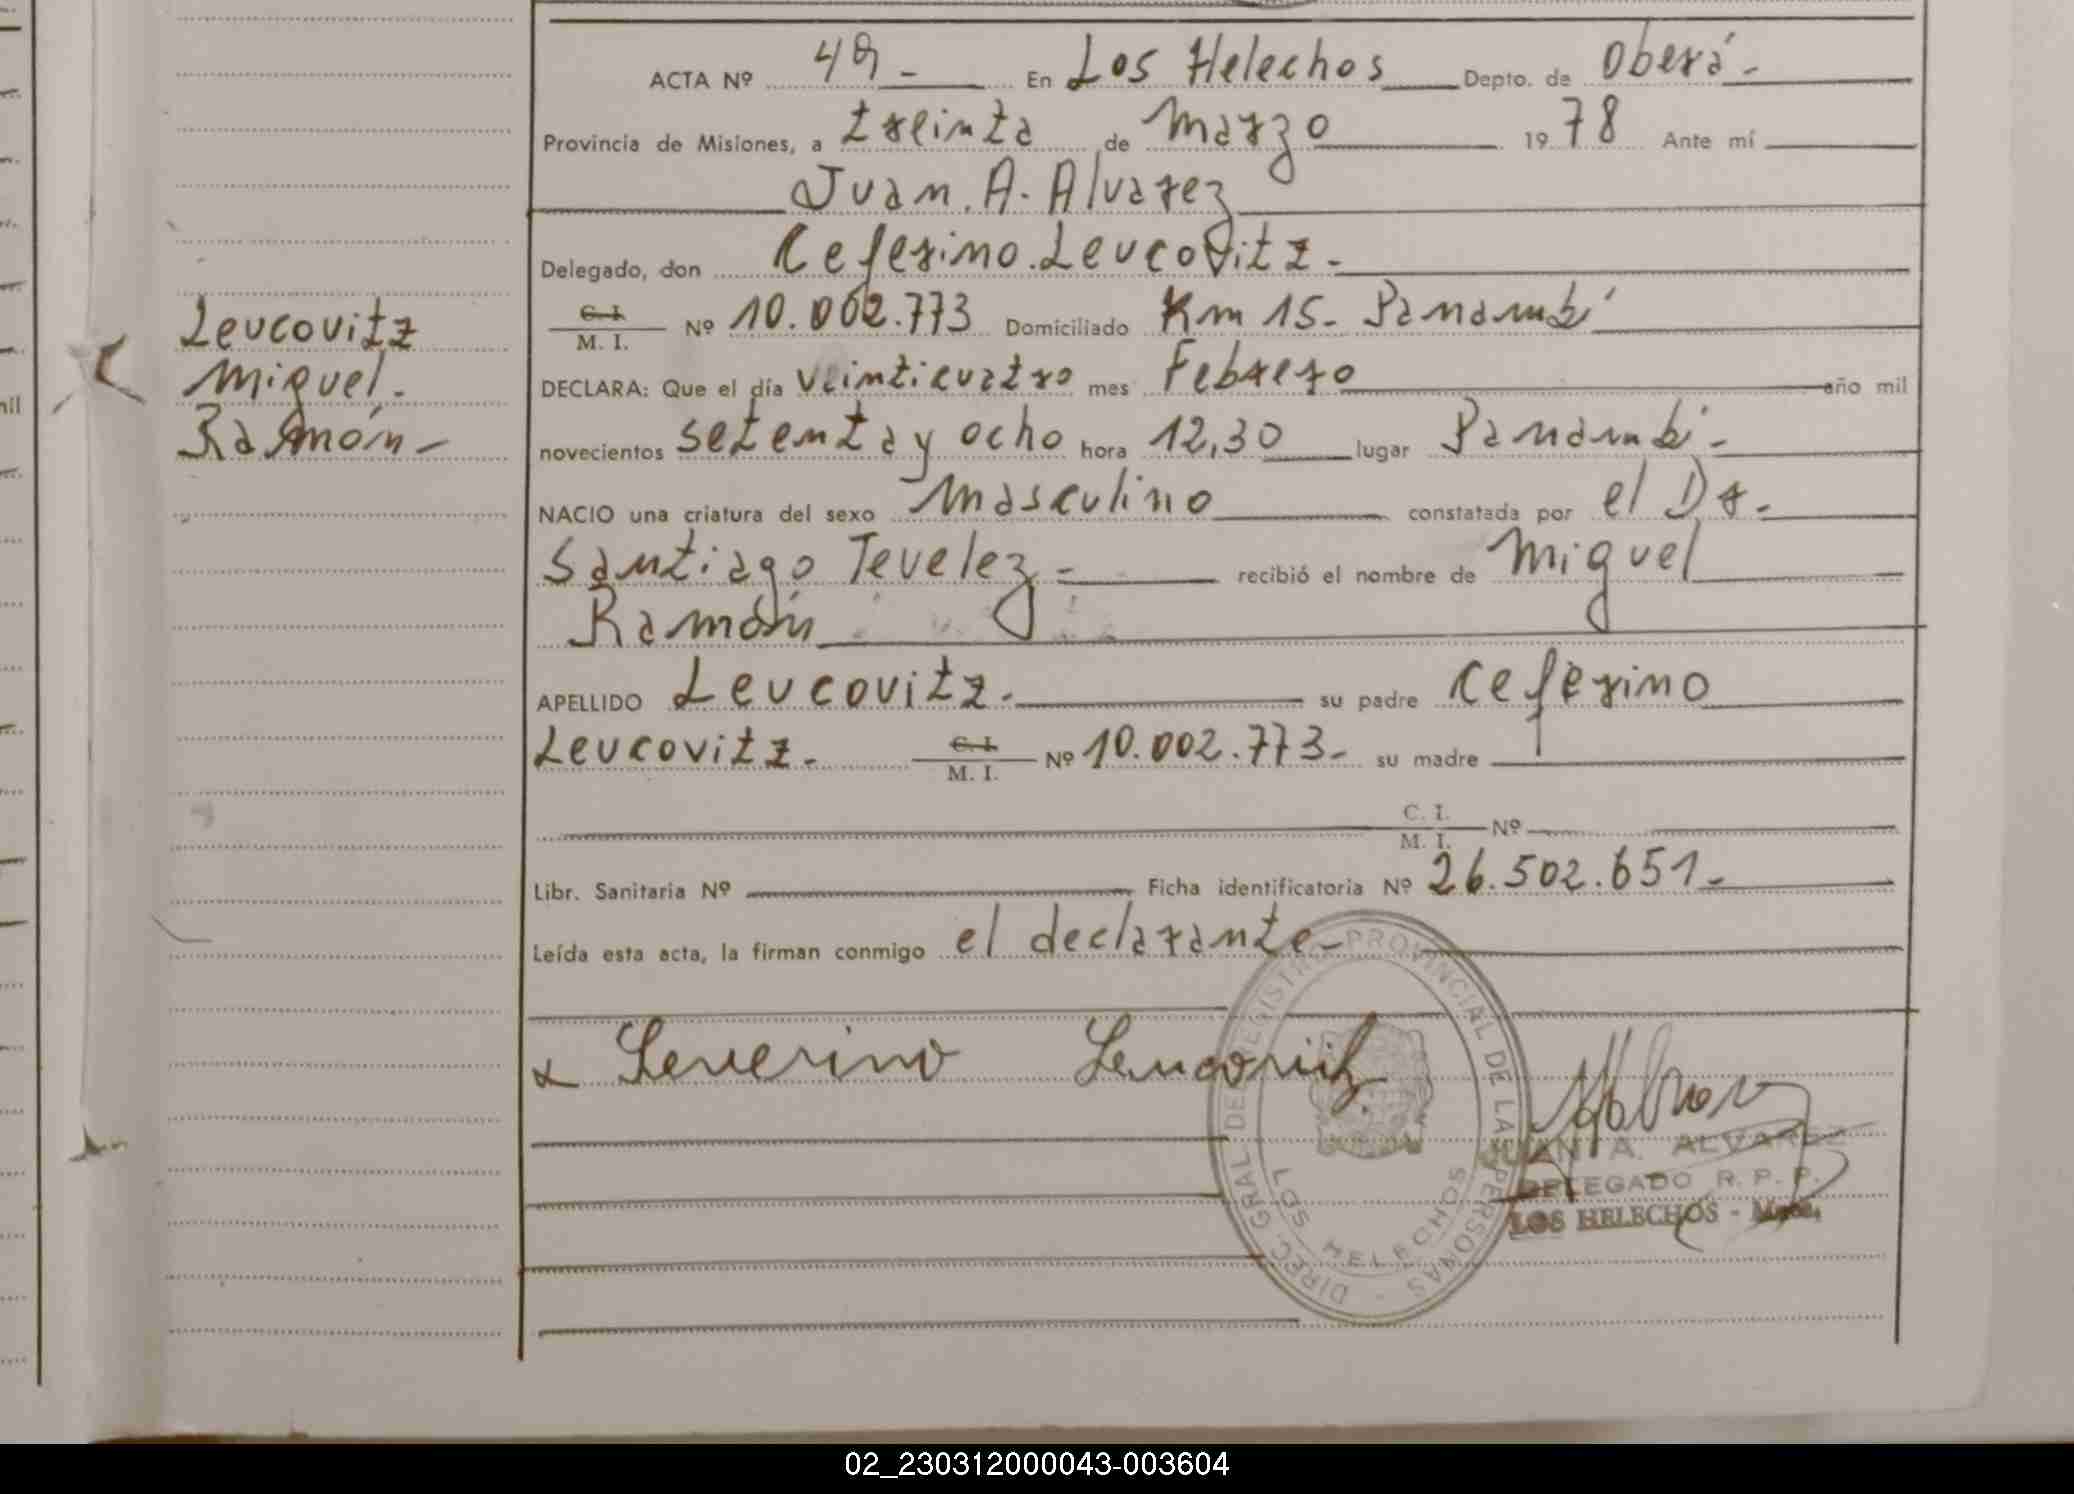 ACTA Nº 49 - En Los Helechos Depto. de Oberá -
Provincia de Misiones, a treinta de Marzo 1978 Ante mí
Juan. A. Alvarez
Delegado, don Ceferino. Leucovitz. -
C. I. / M. I. Nº 10.002.773 Domiciliado Km 15 - Panambí
Leucovitz
Miguel. -
Ramón -
DECLARA: Que el día veinticuatro mes Febrero año mil
novecientos setenta y ocho hora 12,30 lugar Panambí -
NACIO una criatura del sexo Masculino constatada por el Dr. -
Santiago Tevelez - recibió el nombre de Miguel
Ramón
APELLIDO Leucovitz. su padre Ceferino
Leucovitz. C. I. / M. I. Nº 10.002.773 - su madre
C. I. / M. I. Nº
Libr. Sanitaria Nº Ficha identificatoria Nº 26.502.651 -
Leída esta acta, la firman conmigo el declarante -
Severino Leucovitz
DIREC. GRAL. DEL REGISTRO PROVINCIAL DE LAS PERSONAS -
LOS HELECHOS
JUAN A. ALVAREZ
DELEGADO R. P. P.
LOS HELECHOS -
nil
02_230312000043-003604